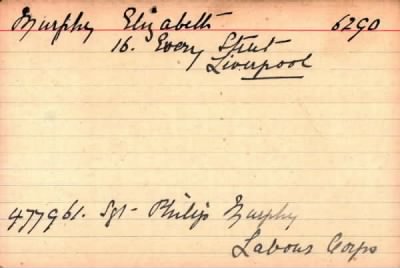 Murphy Elizabeth 6290
16. Every Street
Liverpool
477961. Sgt Philip Murphy
Labour Corps